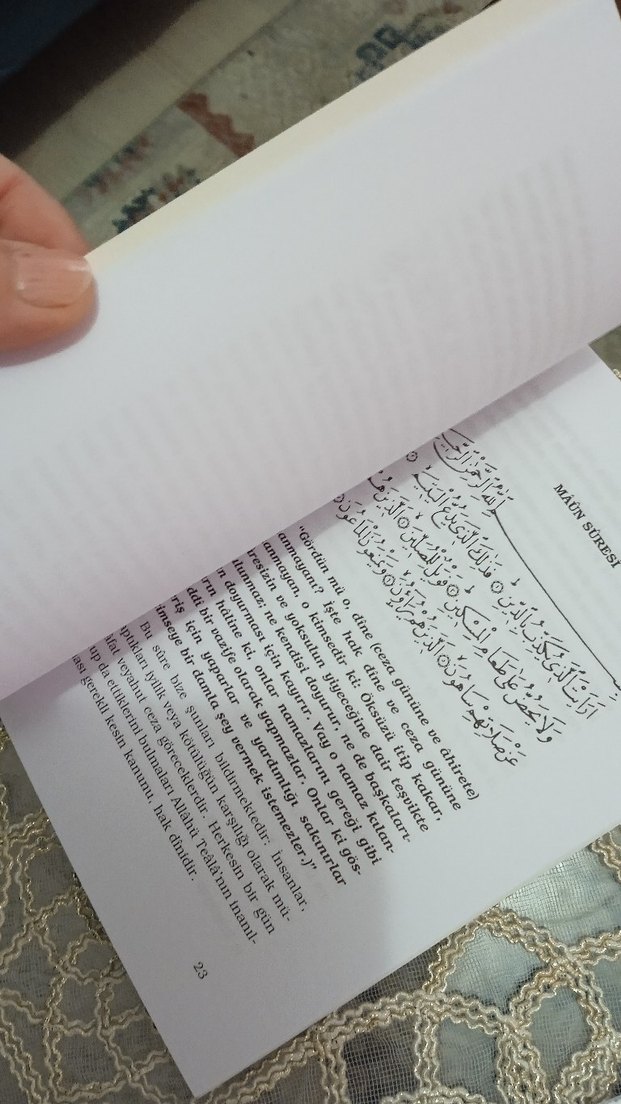 MÂÛN SÛRESİ
اللهِ الرَّحْمٰنِ الرَّحِيمِ
اَرَاَيْتَ الَّذِى يُكَذِّبُ بِالدِّينِ ۞ فَذٰلِكَ الَّذِى يَدُعُّ الْيَتِيمَ ۞
وَلَا يَحُضُّ عَلٰى طَعَامِ الْمِسْكِينِ ۞ فَوَيْلٌ لِلْمُصَلِّينَ ۞ اَلَّذِينَ هُمْ
عَنْ صَلَاتِهِمْ سَاهُونَ ۞ اَلَّذِينَ هُمْ يُرَاؤُنَ ۞ وَيَمْنَعُونَ الْمَاعُونَ ۞
"Gördün mü o, dine (ceza gününe ve âhirete)
anmayanı? İşte hak dine ve ceza gününe
anmayan, o kimsedir ki: Öksüzü itip kakar,
resizin ve yoksulun yiyeceğine dair teşvikte
lunmaz; ne kendisi doyurur, ne de başkaları-
n doyurması için kayırır. Vay o namaz kılan-
rın hâline ki, onlar namazlarını gereği gibi
ddî bir vazife olarak yapmazlar. Onlar ki gös-
riş için yaparlar ve yardımlığı sakınırlar
imseye bir damla şey vermek istemezler.)"
Bu sûre bize şunları bildirmektedir: İnsanlar,
aptıkları iyilik veya kötülüğün karşılığı olarak mü-
âfat veyahut ceza göreceklerdir. Herkesin bir gün
up da ettiklerini bulmaları Allâhü Teâlâ'nın inanıl-
ası gerekli kesin kanunu, hak dinidir.
23